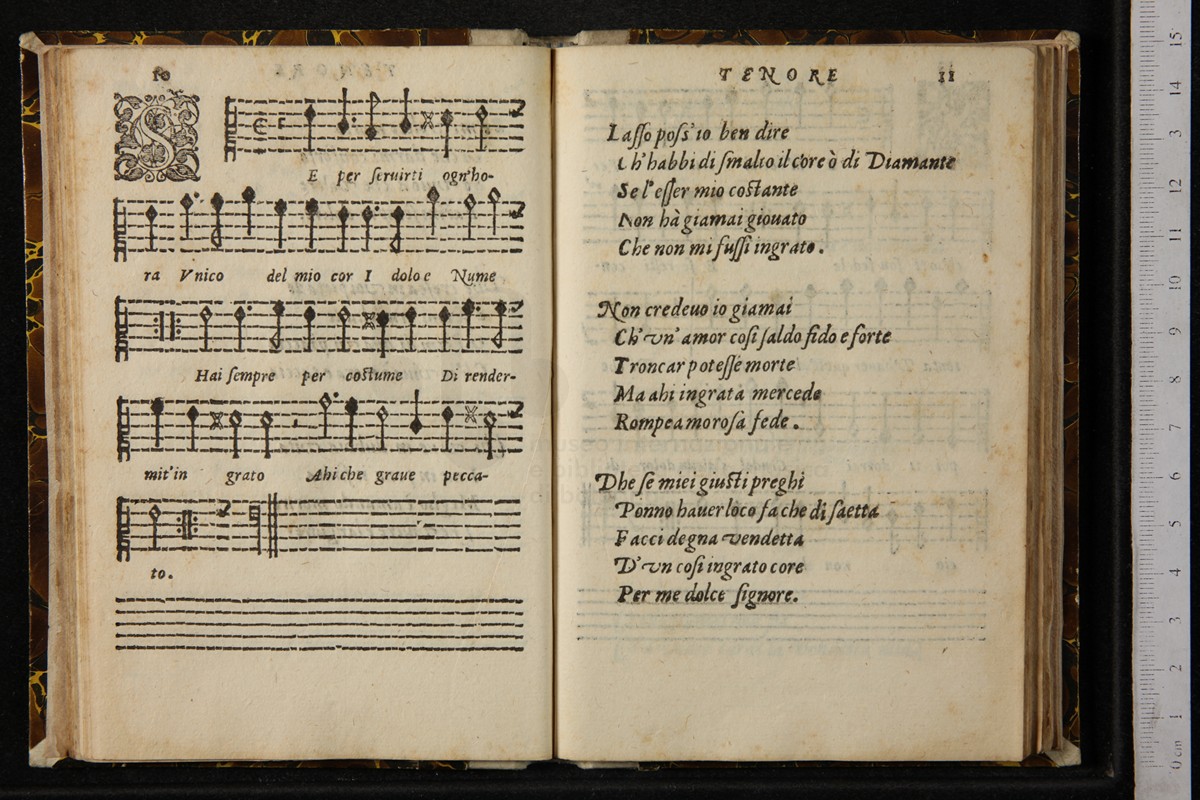 10
SE per seruirti ogn'ho-
ra Vnico del mio cor I dolo e Nume
Hai sempre per costume Di render-
mit'in grato Ahi che graue pecca-
to.
TENORE 11
Lasso poss'io ben dire
Ch'habbi di smalto il core ò di Diamante
Se l'esser mio costante
Non hà giamai giouato
Che non mi fussi ingrato.
Non credeuo io giamai
Ch'vn'amor cosi saldo fido e forte
Troncar potesse morte
Ma ahi ingrata mercede
Rompe amorosa fede.
Dhe se miei giusti preghi
Ponno hauer loco fa che di saetta
Facci degna vendetta
D'vn cosi ingrato core
Per me dolce signore.
0 cm 1 2 3 4 5 6 7 8 9 10 11 12 13 14 15